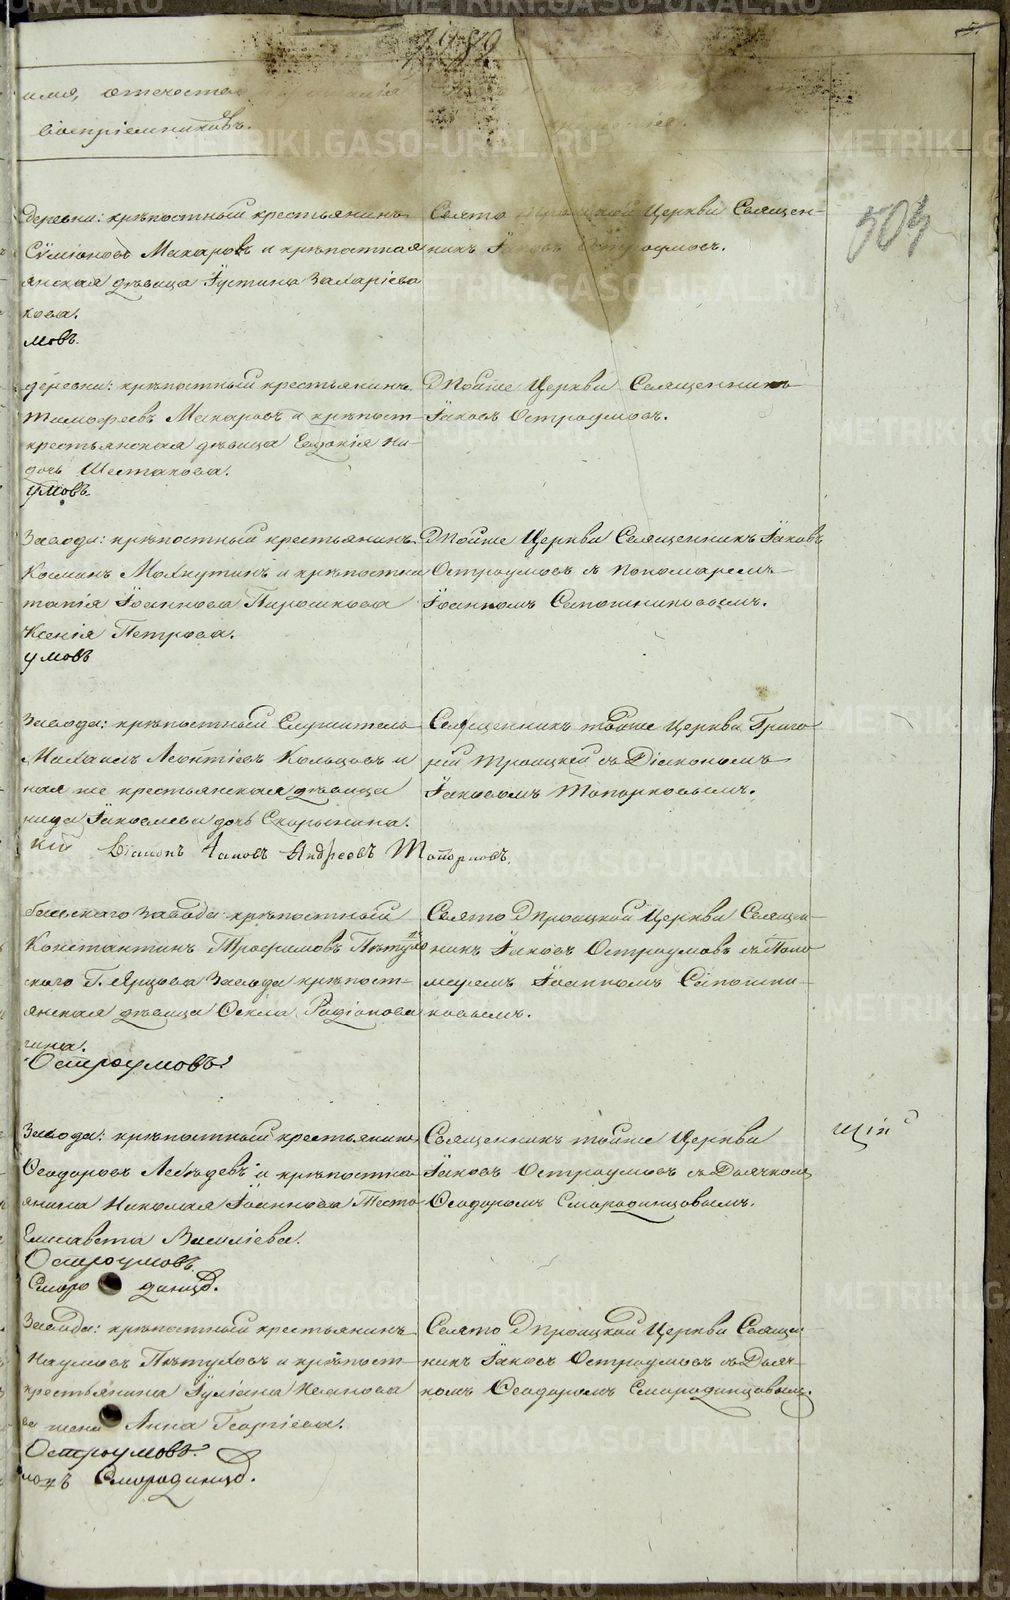 имя, отечество
воспріемниковъ.
503
деревни: крѣпостный крестьянинъ
Сѵміоновъ Макаровъ и крѣпостная
янская дѣвица Іустина Захаріева
кова.
мовъ.
Свято Троицкой Церкви Священ-
никъ Іаковъ Остроумовъ.
деревни: крѣпостный крестьянинъ
Тимофеевъ Макаровъ и крѣпост-
крестьянская дѣвица Евдокія Ни-
дочь Шестакова.
умовъ.
Тойже Церкви Священникъ
Іаковъ Остроумовъ.
Завода: крѣпостный крестьянинъ
Косминъ Махнутинъ и крѣпостна
танія Іоаннова Пирожкова
Ксенія Петрова.
умовъ
Тойже Церкви Священникъ Іаковъ
Остроумовъ съ Пономаремъ
Іоанномъ Сапожниковымъ.
Завода: крѣпостный Служитель
Михаилъ Леонтіевъ Кольцовъ и
ная же крестьянская дѣвица
нида Іаковлева дочь Скорынина.
кій Діаконъ Іаковъ Андреевъ Топорковъ.
Священникъ тойже Церкви Григо
рій Троицкій съ Діакономъ
Іаковомъ Топорковымъ.
Завода крѣпостный
Константинъ Трофимовъ Пѣтухо
скаго Г. Ярцова Завода крѣпост-
янская дѣвица Фекла Родіонова
гина.
Остроумовъ.
Свято Троицкой Церкви Священ-
никъ Іаковъ Остроумовъ съ Поно
маремъ Іоанномъ Сапожни-
ковымъ.
Завода: крѣпостный крестьянинъ
Ѳеодоровъ Лебѣдевъ и крѣпостна
янина Николая Іоаннова Тесто
Елисавета Василіева.
Остроумовъ.
Сморо динцо.
Священникъ тойже Церкви
Іаковъ Остроумовъ съ Дьячкомъ
Ѳеодоромъ Смородинцовымъ.
щій
Завода: крѣпостный крестьянинъ
Наумовъ Пѣтуховъ и крѣпост-
крестьянина Іуліана Иванова
ва жена Анна Георгіева.
Остроумовъ.
Смородинцо.
Свято Троицкой Церкви Священ
никъ Іаковъ Остроумовъ съ Дьяч-
комъ Ѳеодоромъ Смородинцовымъ.
METRIKI.GASO-URAL.RU